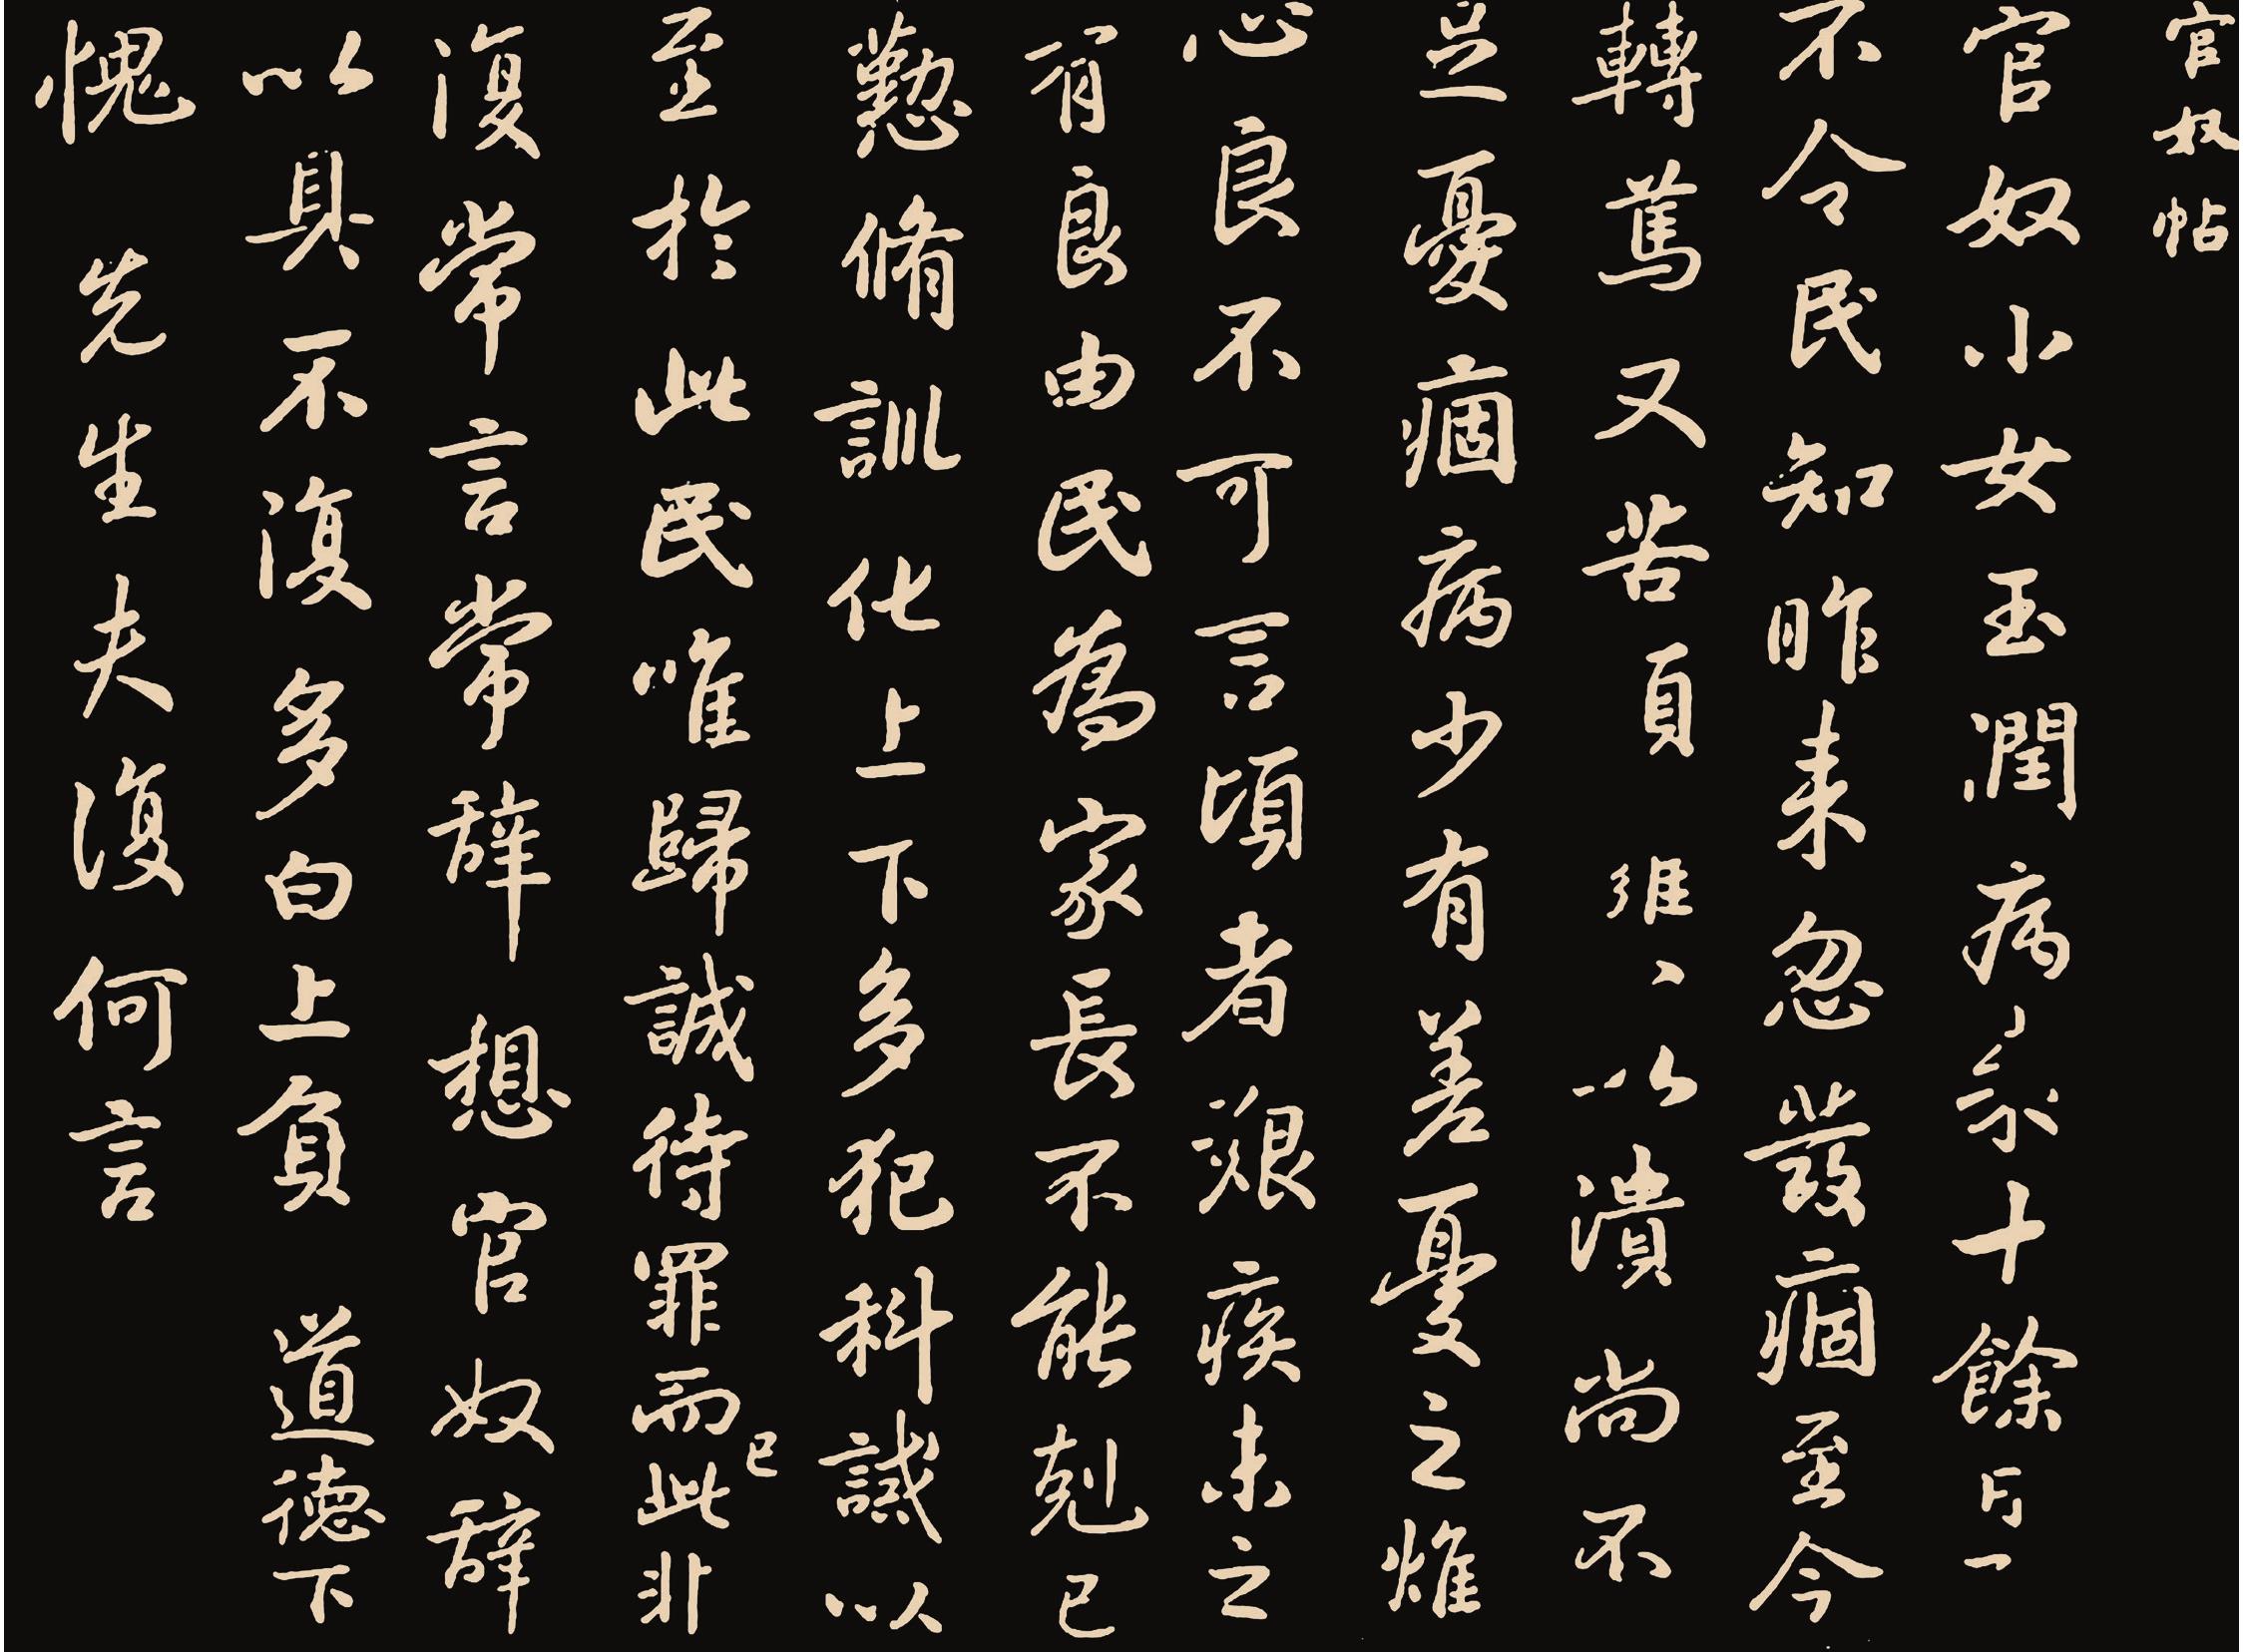 官奴帖
官奴小女玉潤病來十餘日了
不令民知昨来忽發痼至今
轉篤又苦頭癰〻以潰尚不
足憂痼病少有差憂之燋
心良不可言頃者艱疾未之
有良由民為家長不能剋己
懃脩訓化上下多犯科誡以
至於此民唯歸誠待罪而已此非
復常言常辭想官奴辭
以具不復多白上負道德下
愧先生夫復何言